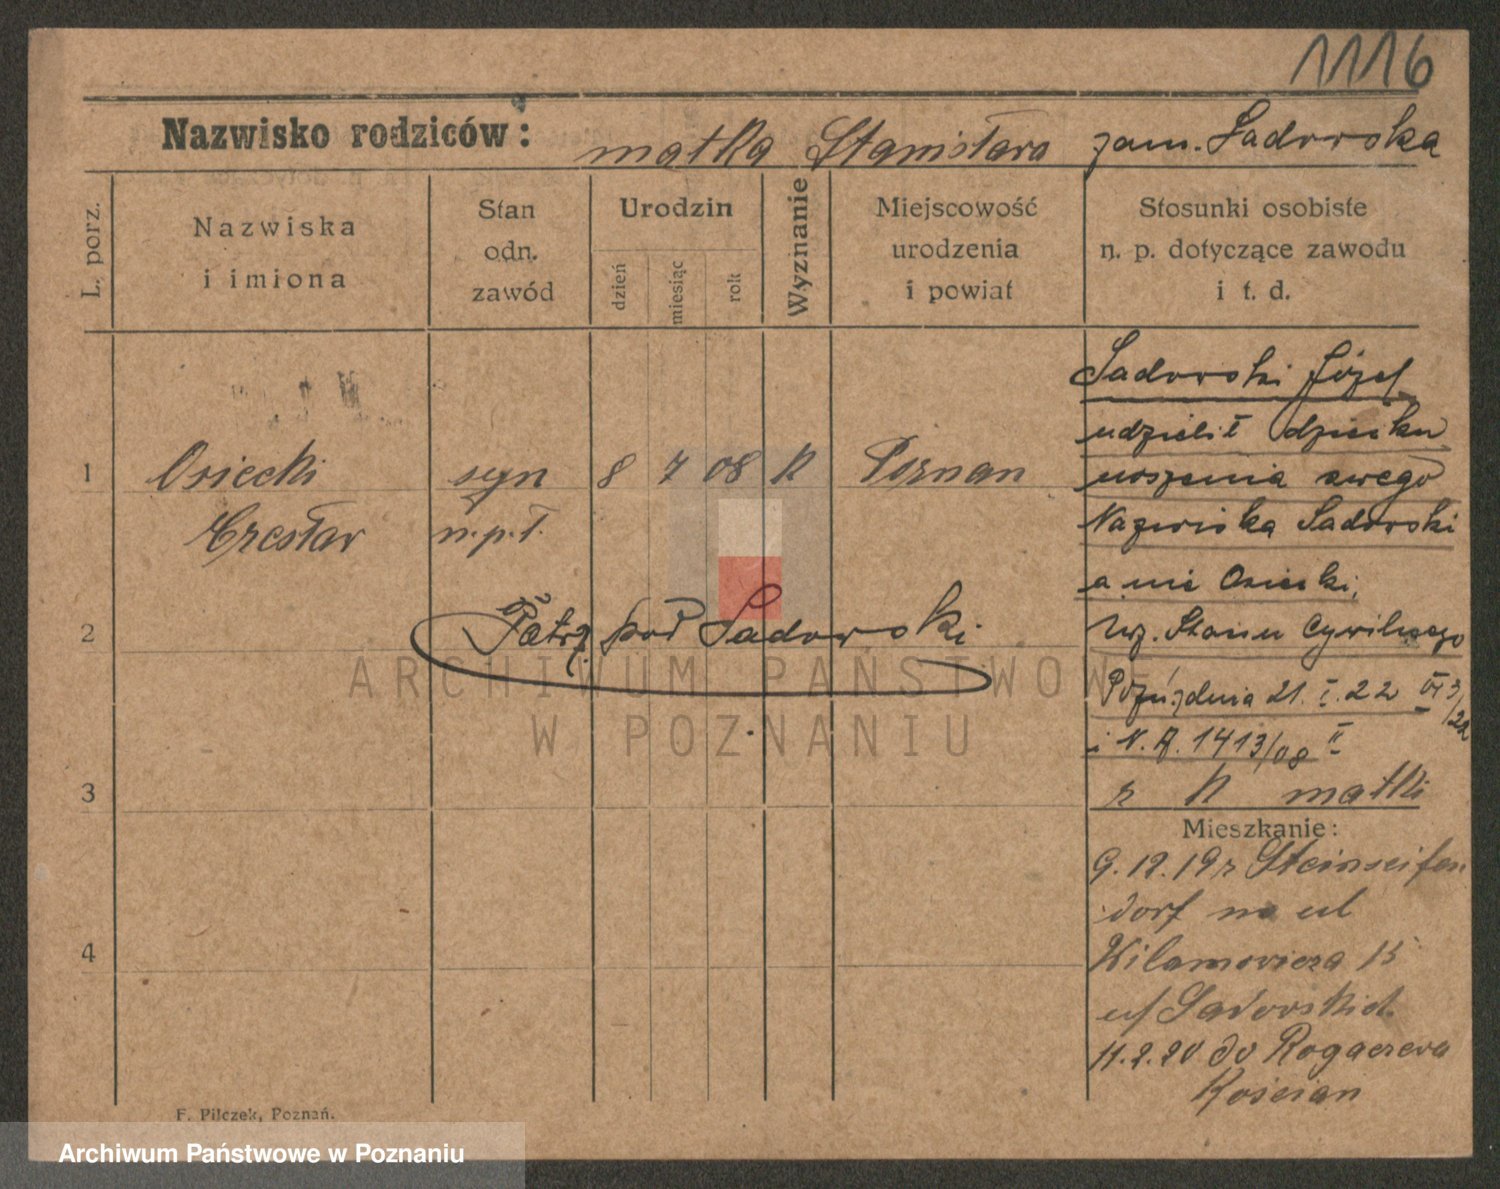 1116
Nazwisko rodziców: matka Stanisława zam. Sadowska
L. porz.
Nazwiska
i imiona
Stan
odn.
zawód
Urodzin
dzień
miesiąc
rok
Wyznanie
Miejscowość
urodzenia
i powiat
Stosunki osobiste
n. p. dotyczące zawodu
i t. d.
1
Osiecki
Czesław
syn
n.p.ł.
8 7 08 K Poznan
2
Patrz pod Sadowski
3
4
Sadowski Józef
udzielił dziecku
noszenia swego
Nazwiska Sadowski
a nie Osiecki,
Urz. Stanu Cywilnego
Pozń. dnia 21. I. 22
i N. A. 1413/08 II
z K matki
Mieszkanie:
9.12.19 z Steinseifen
dorf na ul
13
u/ Sadowskich
11.2.20 do Rogaczewa
Koscian
F. Pilczek, Poznań.
ARCHIWUM PAŃSTWOWE
W POZNANIU
Archiwum Państwowe w Poznaniu